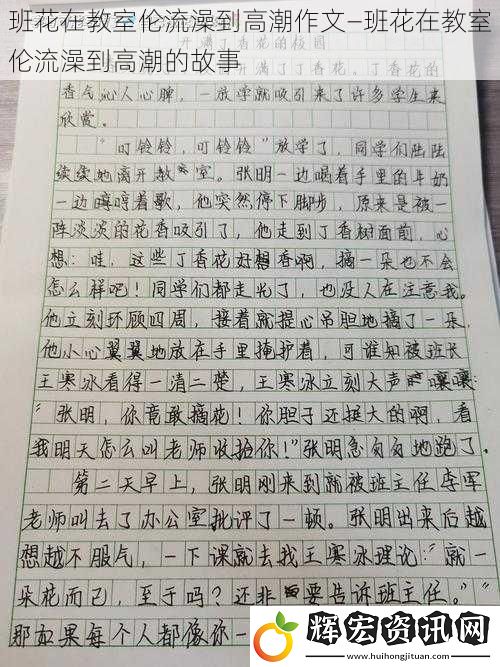 班花在教室伦流澡到高潮作文—班花在教室
伦流澡到高潮的故事
开满丁香花的校园
开满了丁香花。丁香花的
香气沁人心脾，一放学就吸引来了许多学生来
欣赏。
“叮铃铃，叮铃铃”放学了，同学们陆陆
续续地离开教室。张明一边喝着手里的牛奶
一边哼哼着歌，他突然停下脚步，原来是被一
阵淡淡的花香吸引了，他走到丁香树面前，心
想：哇，这些丁香花好想香啊，摘一朵也不会
怎么样吧！同学们都走光了，也没人在注意我。
他立刻环顾四周，接着就提心吊胆地摘了一朵，
他小心翼翼地放在手里掩护着，可谁知被班长
王寒冰看得一清二楚，王寒冰立刻大声嚷嚷：
“张明，你竟敢摘花！你胆子还挺大的啊，看
我明天怎么叫老师收拾你！”张明急匆匆地跑了。
第二天早上，张明刚来到就被班主任李军
老师叫去了办公室批评了一顿。张明出来后越
想越不服气，一下课就去找王寒冰理论：“就一
朵花而已，至于吗？还非要告诉班主任。”“
那如果每个人都像你一
辉宏资讯网
www.huihongjituan.com